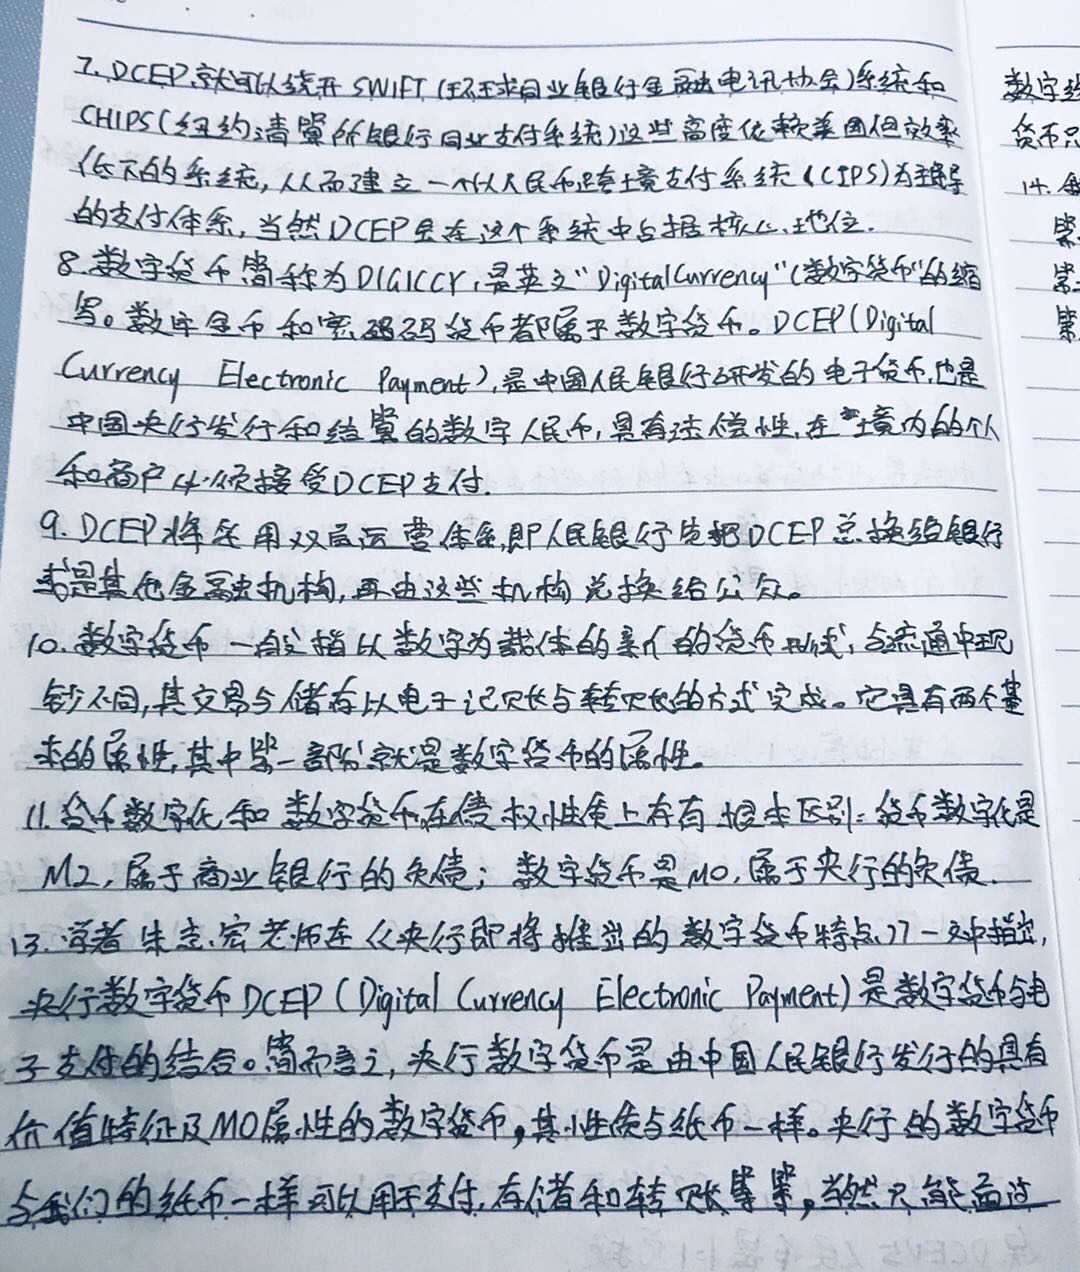 7. DCEP就可以绕开SWIFT(环球同业银行金融电讯协会)系统和
CHIPS(纽约清算所银行同业支付系统)这些高度依赖美国但效率
低下的系统,从而建立一个以人民币跨境支付系统(CIPS)为主导
的支付体系,当然DCEP会在这个系统中占据核心地位.
8.数字货币简称为DIGICCY,是英文"DigitalCurrency"(数字货币"的缩
写。数字金币和密码货币都属于数字货币。DCEP(Digital
Currency Electronic Payment),是中国人民银行研发的电子货币,也是
中国央行发行和结算的数字人民币,具有法偿性,在境内的个人
和商户必须接受DCEP支付.
9. DCEP将采用双层运营体系,即人民银行先把DCEP总换给银行
或是其他金融机构,再由这些机构兑换给公众。
10.数字货币一般指以数字为载体的等价的货币形式,与流通中现
钞不同,其交易与储存以电子记账与转账的方式完成。它具有两个基
本的属性,其中第一部分就是数字货币的属性。
11.货币数字化和数字货币在债权性质上存有根本区别:货币数字化是
M2,属于商业银行的负债;数字货币是M0,属于央行的负债.
13.学者朱志宏老师在《央行即将推出的数字货币特点》一文中指出,
央行数字货币DCEP(Digital Currency Electronic Payment)是数字货币与电
子支付的结合。简而言之,央行数字货币是由中国人民银行发行的具有
价值特征及M0属性的数字货币,其性质与纸币一样。央行的数字货币
与我们的纸币一样可以用于支付,存储和转账等等,当然只能通过
数字
货币只
14.
第
第
第